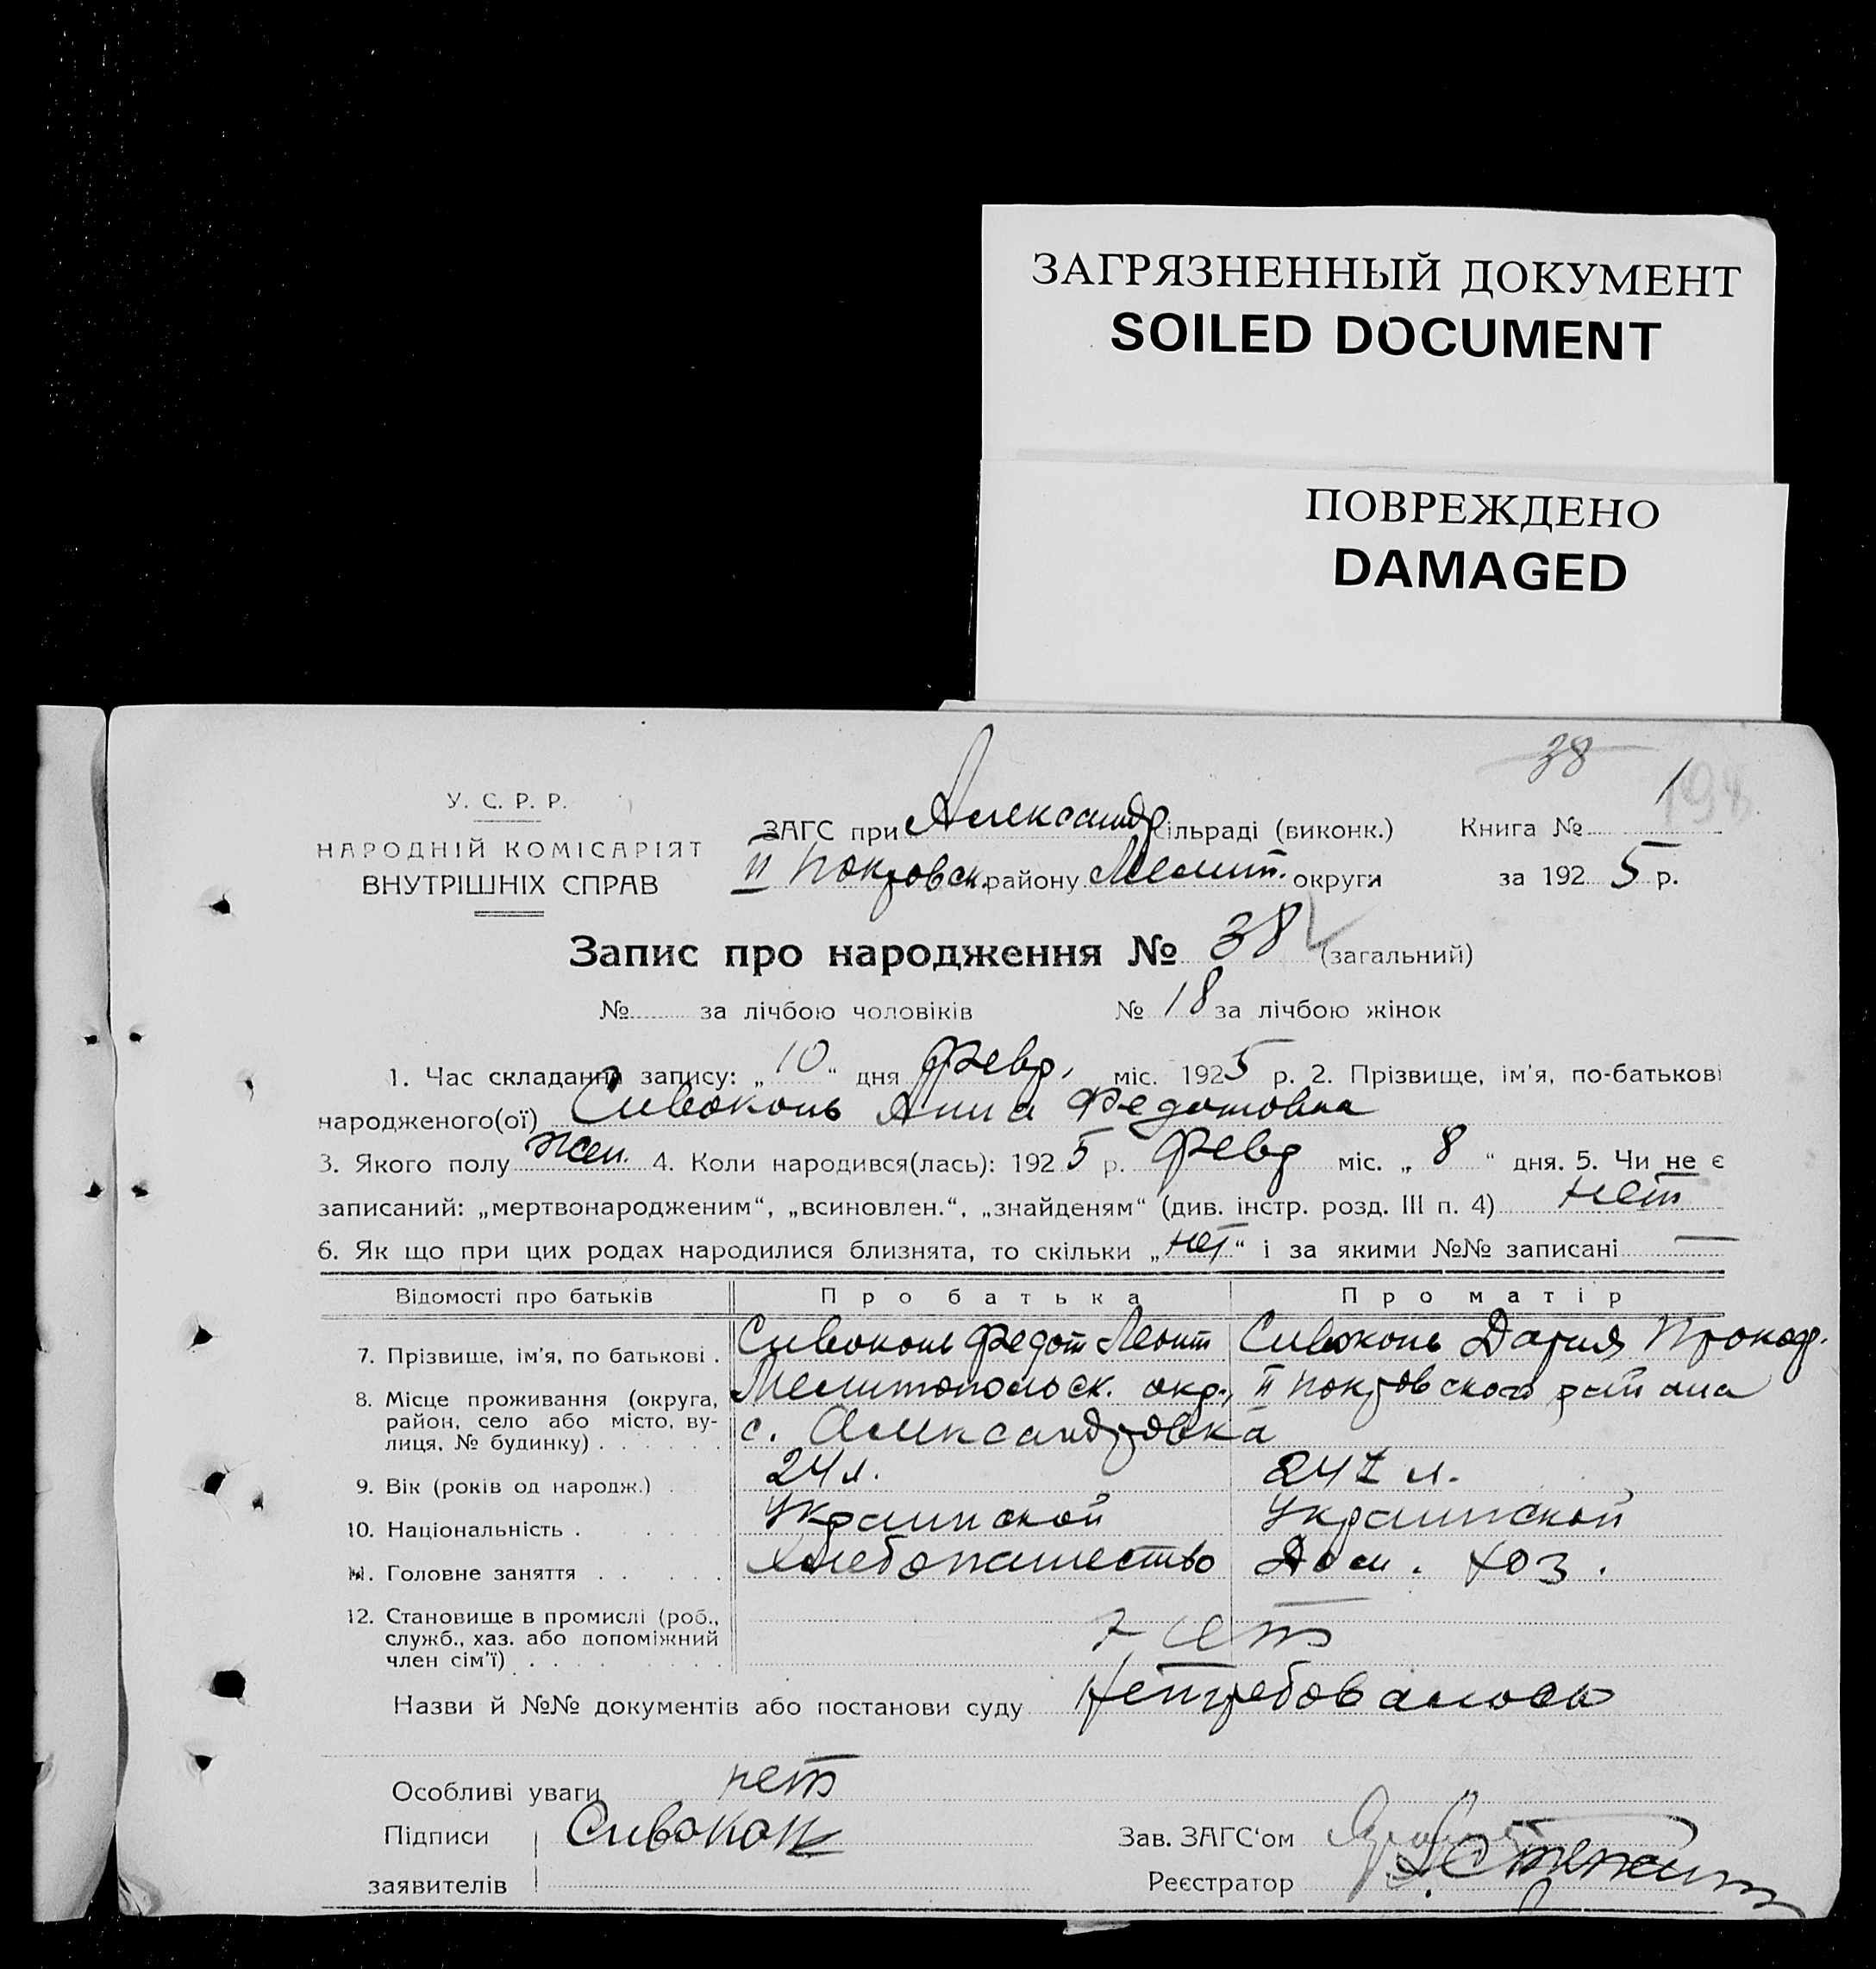 ЗАГРЯЗНЕННЫЙ ДОКУМЕНТ
SOILED DOCUMENT
ПОВРЕЖДЕНО
DAMAGED
38
198
У. С. Р. Р.
НАРОДНІЙ КОМІСАРІЯТ
ВНУТРІШНІХ СПРАВ
ЗАГС при Александр сільраді (виконк.) Книга № 1
II Покровск. району Мелит. округи за 1925 р.
Запис про народження № 38 (загальний)
№ за лічбою чоловіків № 18 за лічбою жінок
1. Час складання запису: „10“ дня февр. міс. 1925 р. 2. Прізвище, ім'я, по-батькові
народженого(ої) Сивоконь Анна Федотовна
3. Якого полу жен. 4. Коли народився(лась): 1925 р. февр міс. „8“ дня. 5. Чи не є
записаний: „мертвонародженим“, „всиновлен.“, „знайденям“ (див. інстр. розд. III п. 4) нет
6. Як що при цих родах народилися близнята, то скільки „нет“ і за якими №№ записані —
Відомості про батьків Про батька Про матір
7. Прізвище, ім'я, по батькові . Сивоконь Федот Леонт Сивоконь Дария Прокоф.
8. Місце проживання (округа, Мелитопольск. окр., II Покровского района
район, село або місто, ву- с. Александровка
лиця, № будинку) . . . . . .
9. Вік (років од народж.) . 24 л. 24 л.
10. Національність . . . . Украинской Украинской
11. Головне заняття . . . . . Хлебопашество Дом. хоз.
12. Становище в промислі (роб.,
служб., хаз. або допоміжний нет
член сім'ї) . . . . . . . .
Назви й №№ документів або постанови суду Нетребовалось
Особливі уваги нет
Підписи Сивокон Зав. ЗАГС'ом
заявителів Реєстратор